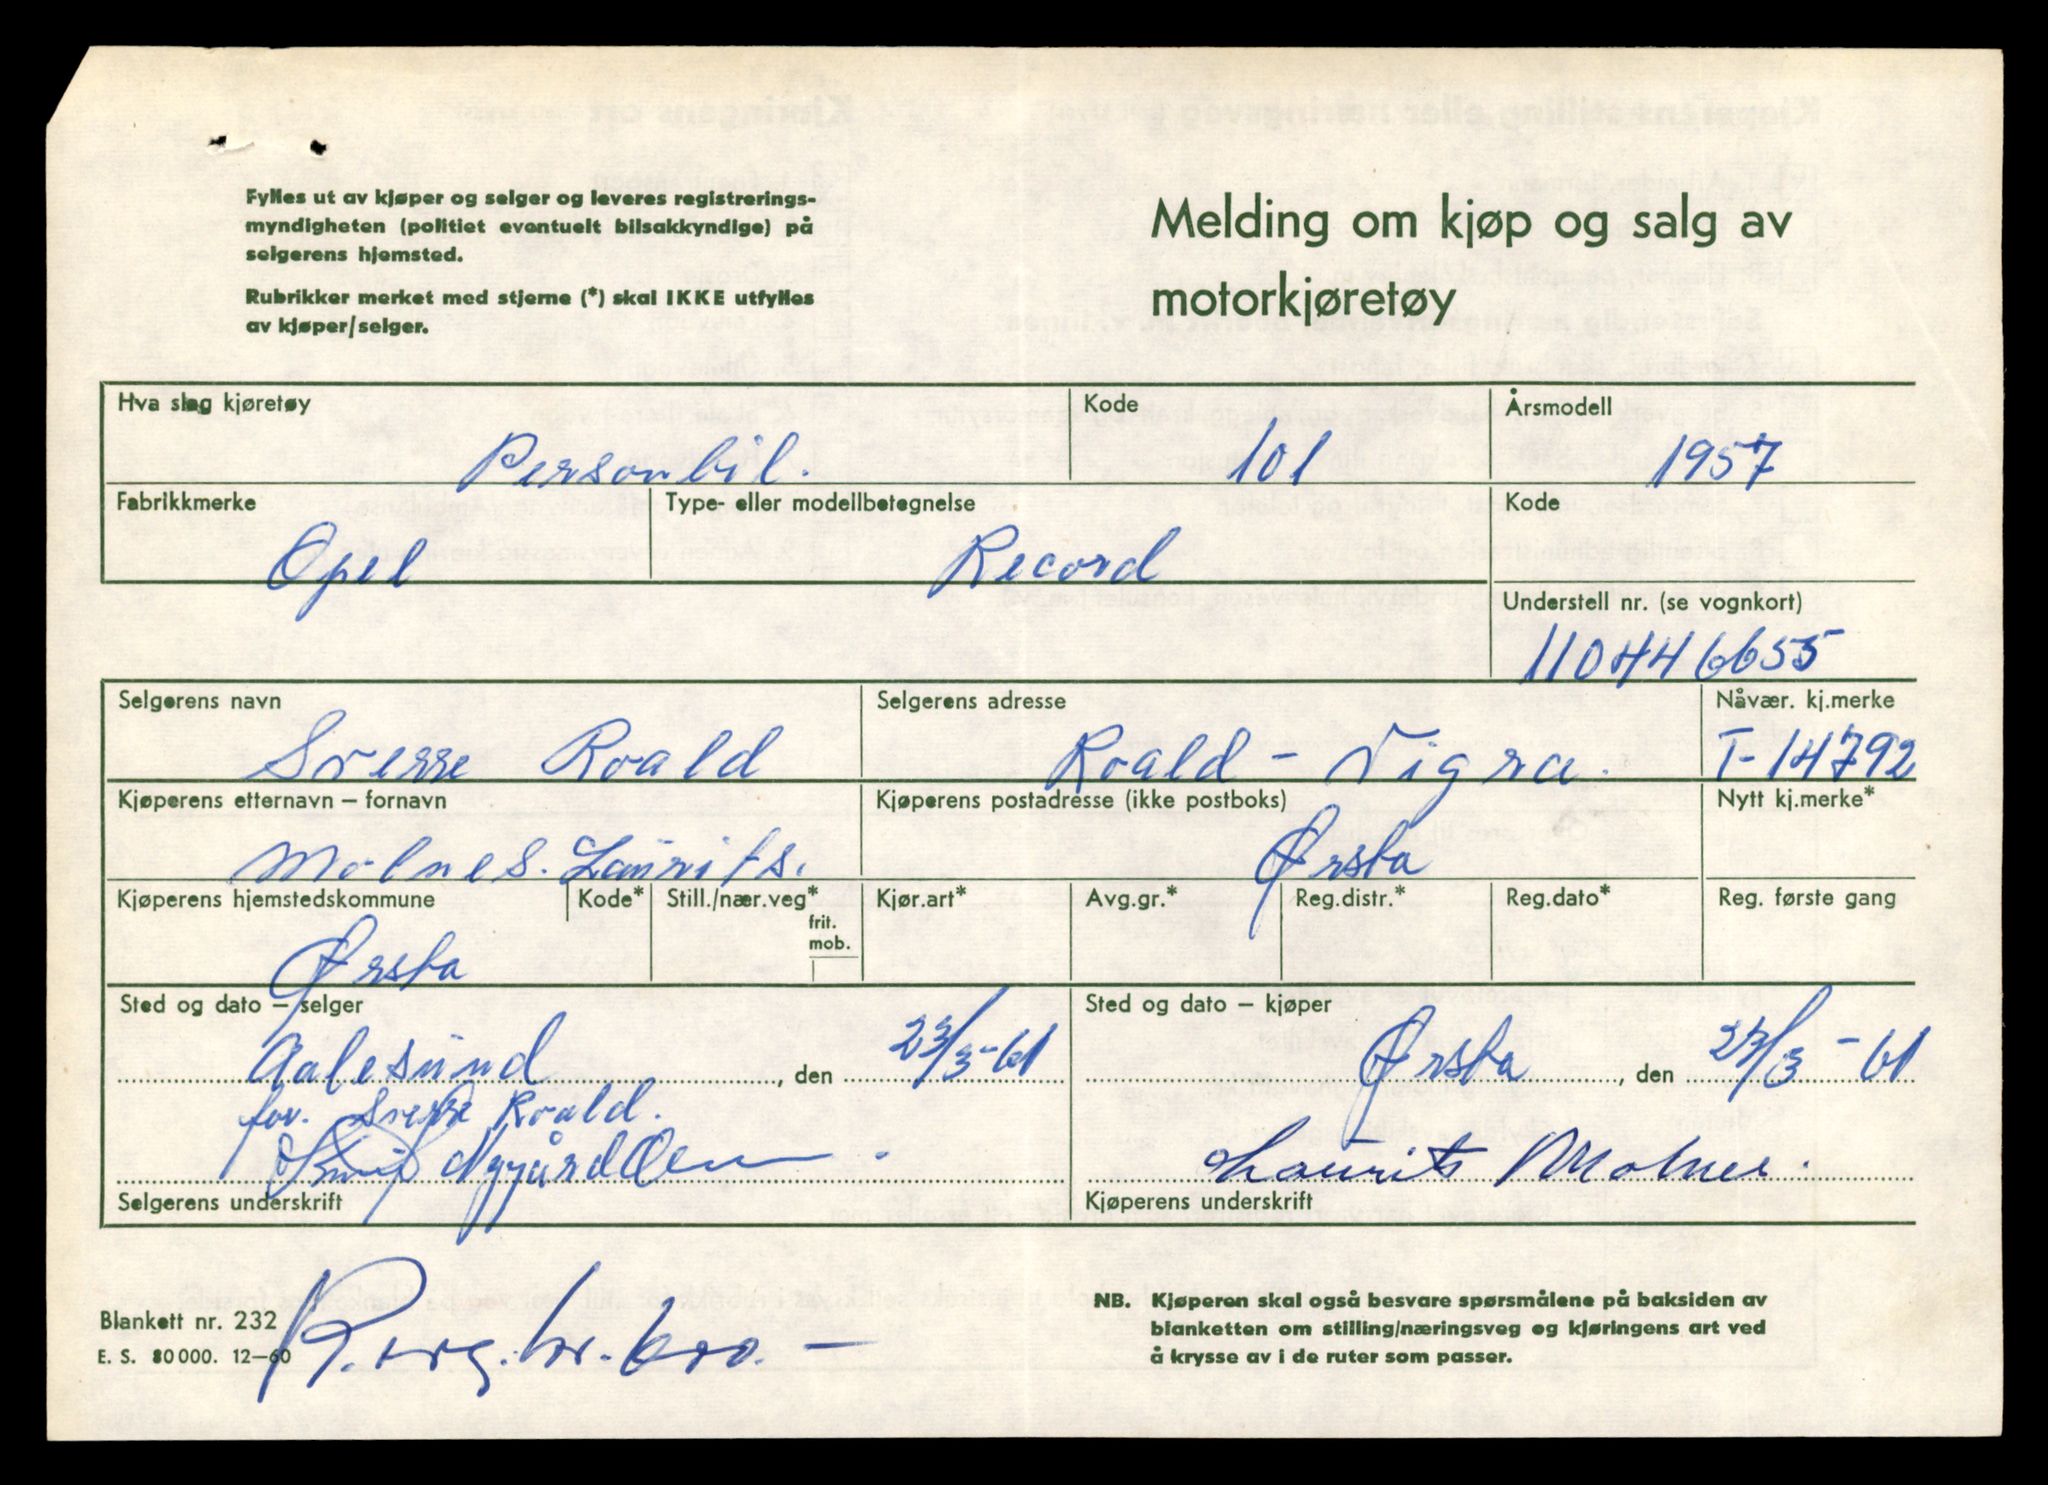 Fylles ut av kjøper og selger og leveres registrerings-
myndigheten (politiet eventuelt bilsakkyndige) på
selgerens hjemsted.
Rubrikker merket med stjerne (*) skal IKKE utfylles
av kjøper/selger.
Melding om kjøp og salg av
motorkjøretøy
Hva slag kjøretøy Kode Årsmodell
Personbil. 101 1957
Fabrikkmerke Type- eller modellbetegnelse Kode
Opel Record
Understell nr. (se vognkort)
110446655
Selgerens navn Selgerens adresse Nåvær. kj.merke
Sverre Roald Roald - Vigra. T-14792
Kjøperens etternavn – fornavn Kjøperens postadresse (ikke postboks) Nytt kj.merke*
Molnes. Laurits. Ørsta
Kjøperens hjemstedskommune Kode* Still./nær.veg* Kjør.art* Avg.gr.* Reg.distr.* Reg.dato* Reg. første gang
frit.
mob.
Ørsta
Sted og dato – selger Sted og dato – kjøper
Aalesund , den 23/3-61 Ørsta , den 23/3-61
for. Sverre Roald.
Laurits Molnes.
Selgerens underskrift Kjøperens underskrift
Blankett nr. 232
E. S. 80 000. 12–60
NB. Kjøperen skal også besvare spørsmålene på baksiden av
blanketten om stilling/næringsveg og kjøringens art ved
å krysse av i de ruter som passer.